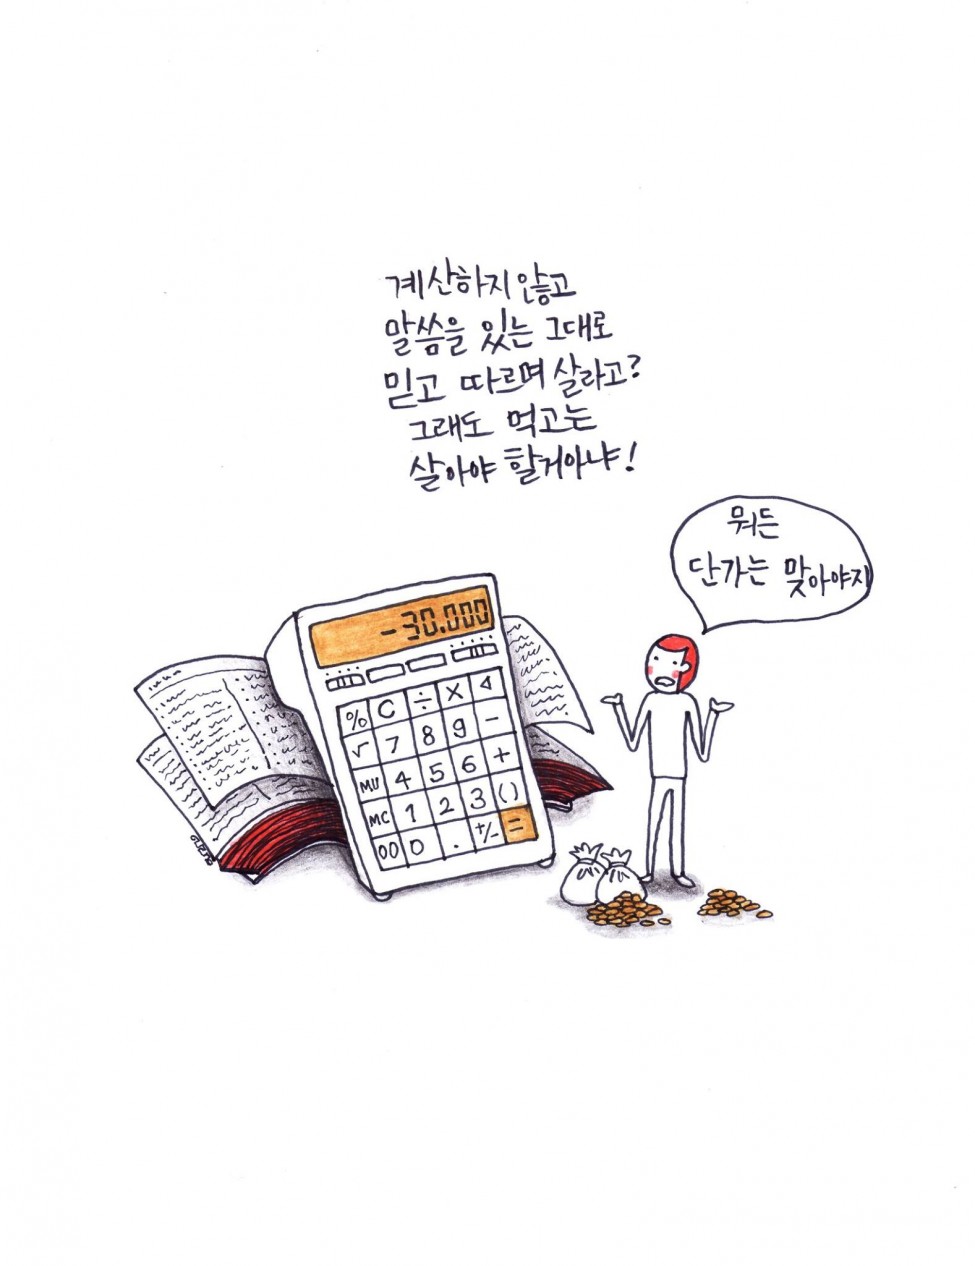 계산하지 않고
말씀을 있는 그대로
믿고 따르며 살라고?
그래도 먹고는
살아야 할거아냐!
뭐든
단가는 맞아야지
-30.000
% C ÷ X
√ 7 8 9 -
MU 4 5 6 +
MC 1 2 3 ()
00 0 . +/- =